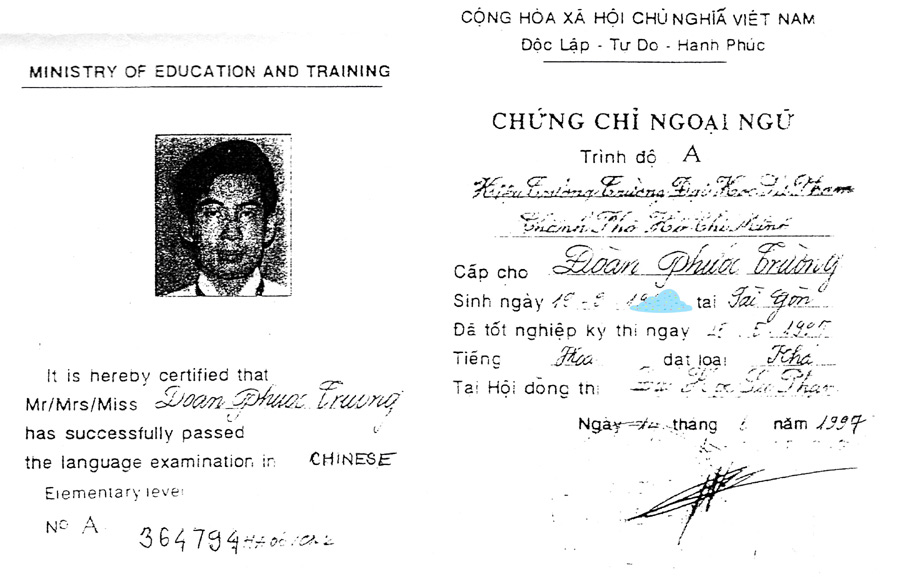 MINISTRY OF EDUCATION AND TRAINING
It is hereby certified that
Mr/Mrs/Miss Doan Phuoc Truong
has successfully passed
the language examination in CHINESE
Elementary level
Nº A 364794
CỘNG HÒA XÃ HỘI CHỦ NGHĨA VIỆT NAM
Độc Lập - Tự Do - Hạnh Phúc
CHỨNG CHỈ NGOẠI NGỮ
Trình độ A
Hiệu Trưởng Trường Đại Học Sư Phạm
Thành Phố Hồ Chí Minh
Cấp cho Đoàn Phước Trường
Sinh ngày tại Sài Gòn
Đã tốt nghiệp kỳ thi ngày
Tiếng Hoa đạt loại Khá
Tại Hội đồng thi Đại Học Sư Phạm
Ngày tháng năm 1997